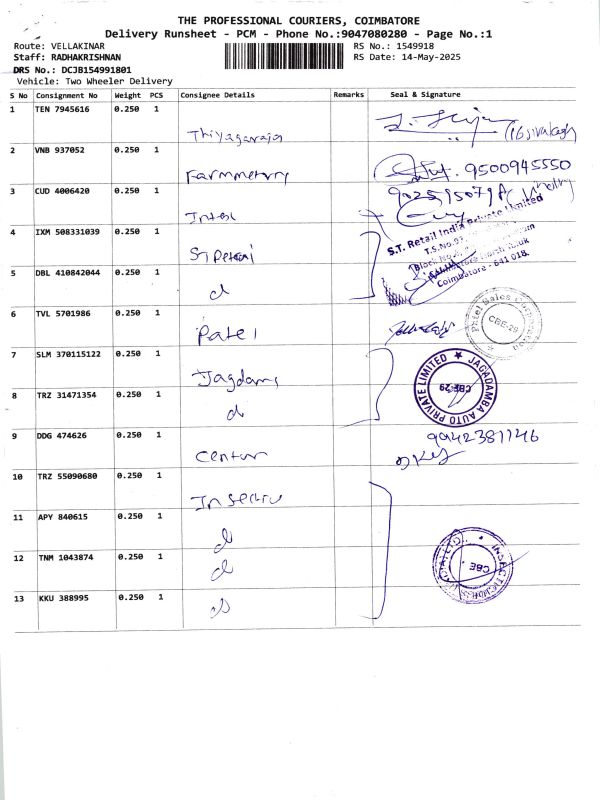 THE PROFESSIONAL COURIERS, COIMBATORE
Delivery Runsheet - PCM - Phone No.:9047080280 - Page No.:1
Route: VELLAKINAR RS No.: 1549918
Staff: RADHAKRISHNAN RS Date: 14-May-2025
DRS No.: DCJB154991801
Vehicle: Two Wheeler Delivery
S No Consignment No Weight PCS Consignee Details Remarks Seal & Signature
1 TEN 7945616 0.250 1
Thiyagaraja
2 VNB 937052 0.250 1
Farmmetry 9500945550
3 CUD 4006420 0.250 1
Intel
4 IXM 508331039 0.250 1
S.T. Retail India Private Limited
Coimbatore - 641 018.
5 DBL 410842044 0.250 1
d
6 TVL 5701986 0.250 1
Patel
CBE-29
7 SLM 370115122 0.250 1
Jagdam
JAGADAMBA AUTO PRIVATE LIMITED
CBE-29
8 TRZ 31471354 0.250 1
d
9 DDG 474626 0.250 1
Centur
9942381746
10 TRZ 55090680 0.250 1
11 APY 840615 0.250 1
d
12 TNM 1043874 0.250 1
d
CBE.
13 KKU 388995 0.250 1
d